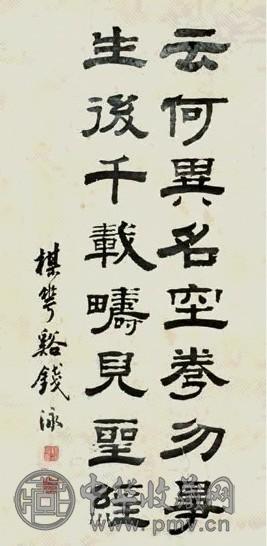 云何異名空拳勿
生後千載疇見聖
楳華谿錢泳
中華收藏网
www.pmv.cn